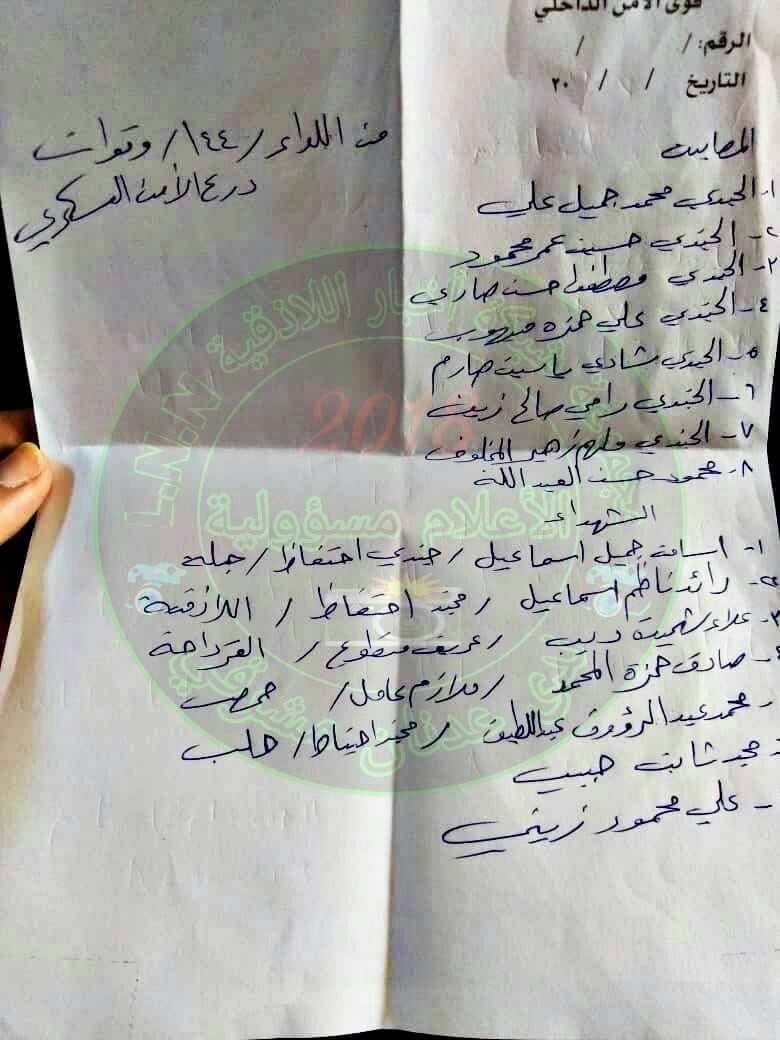 قوى الأمن الداخلي
الرقم: / /
التاريخ / / ٢٠
المصابين
من اللواء /١٤٤/ وقوات
درع الأمن العسكري
١- الجندي محمد جميل علي
٢- الجندي حسين عمر محمود
٣- الجندي مصطفى حسن صاري
٤- الجندي علي حمزه ميهوب
٥- الجندي شادي ياسين صارم
٦- الجندي رامي صالح زيدن
٧- الجندي ملهم زهير المخلوف
٨- محمود حسن العبد الله
الشهداء
١- اسامة جميل اسماعيل / جندي احتفاظ / جبله
٢- رائد ناظم اسماعيل / مجند احتفاظ / اللاذقية
٣- علاء ديب / عريف متطوع / القرداحة
٤- صادق حمزة المحمد / ملازم عامل / حمص
- محمد عبد الرؤوف عبداللطيف / مجند احتياط / حلب
- مجد حبيب
- علي محمود زيني
شبكة أخبار اللاذقية L.N.N
2018
الأعلام مسؤولية